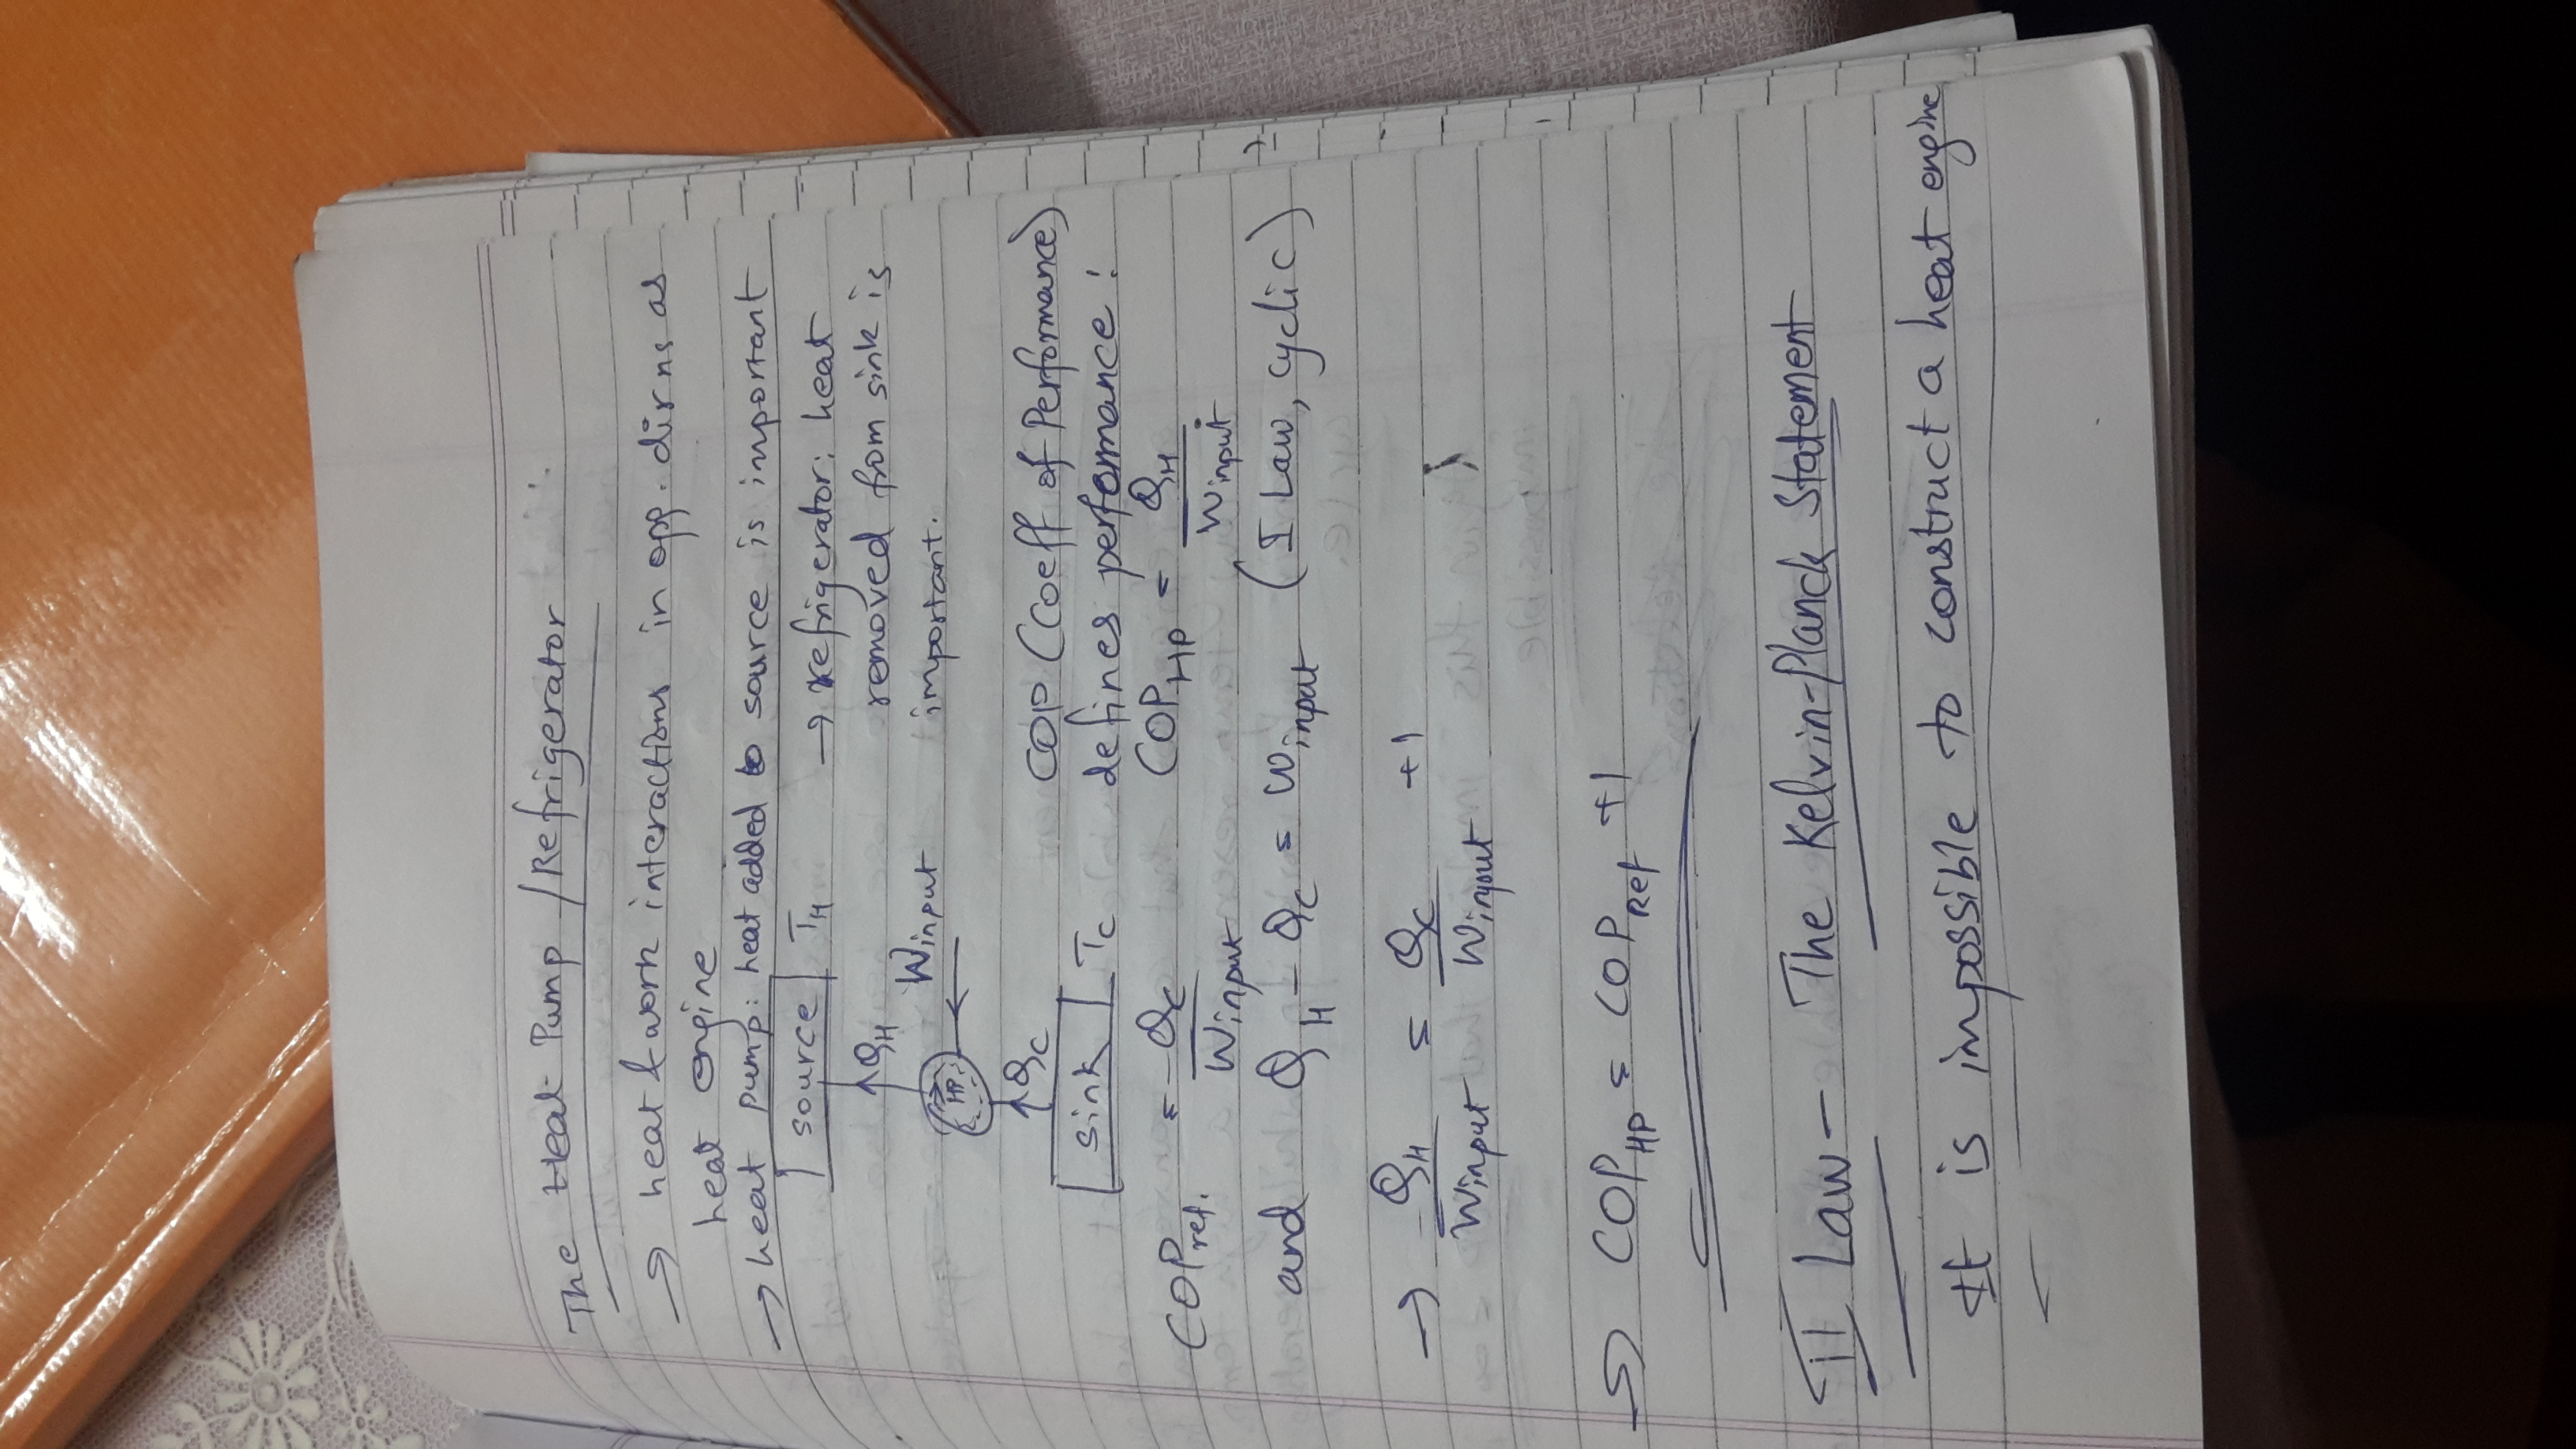 The Heat Pump / Refrigerator
→ heat & work interactions in opp. dirns as
heat engine
→ heat pump: heat added to source is important
source TH
→ refrigerator: heat
removed from sink is
important.
QH
Winput
HP
QC
sink TC
COP (Coeff of Performance)
defines performance:
COPref. = QC / Winput
COPHP = QH / Winput
and QH - QC = Winput (I Law, cyclic)
→ QH / Winput = QC / Winput +1
→ COPHP = COPRef +1
II Law - The Kelvin-Planck Statement
It is impossible to construct a heat engine